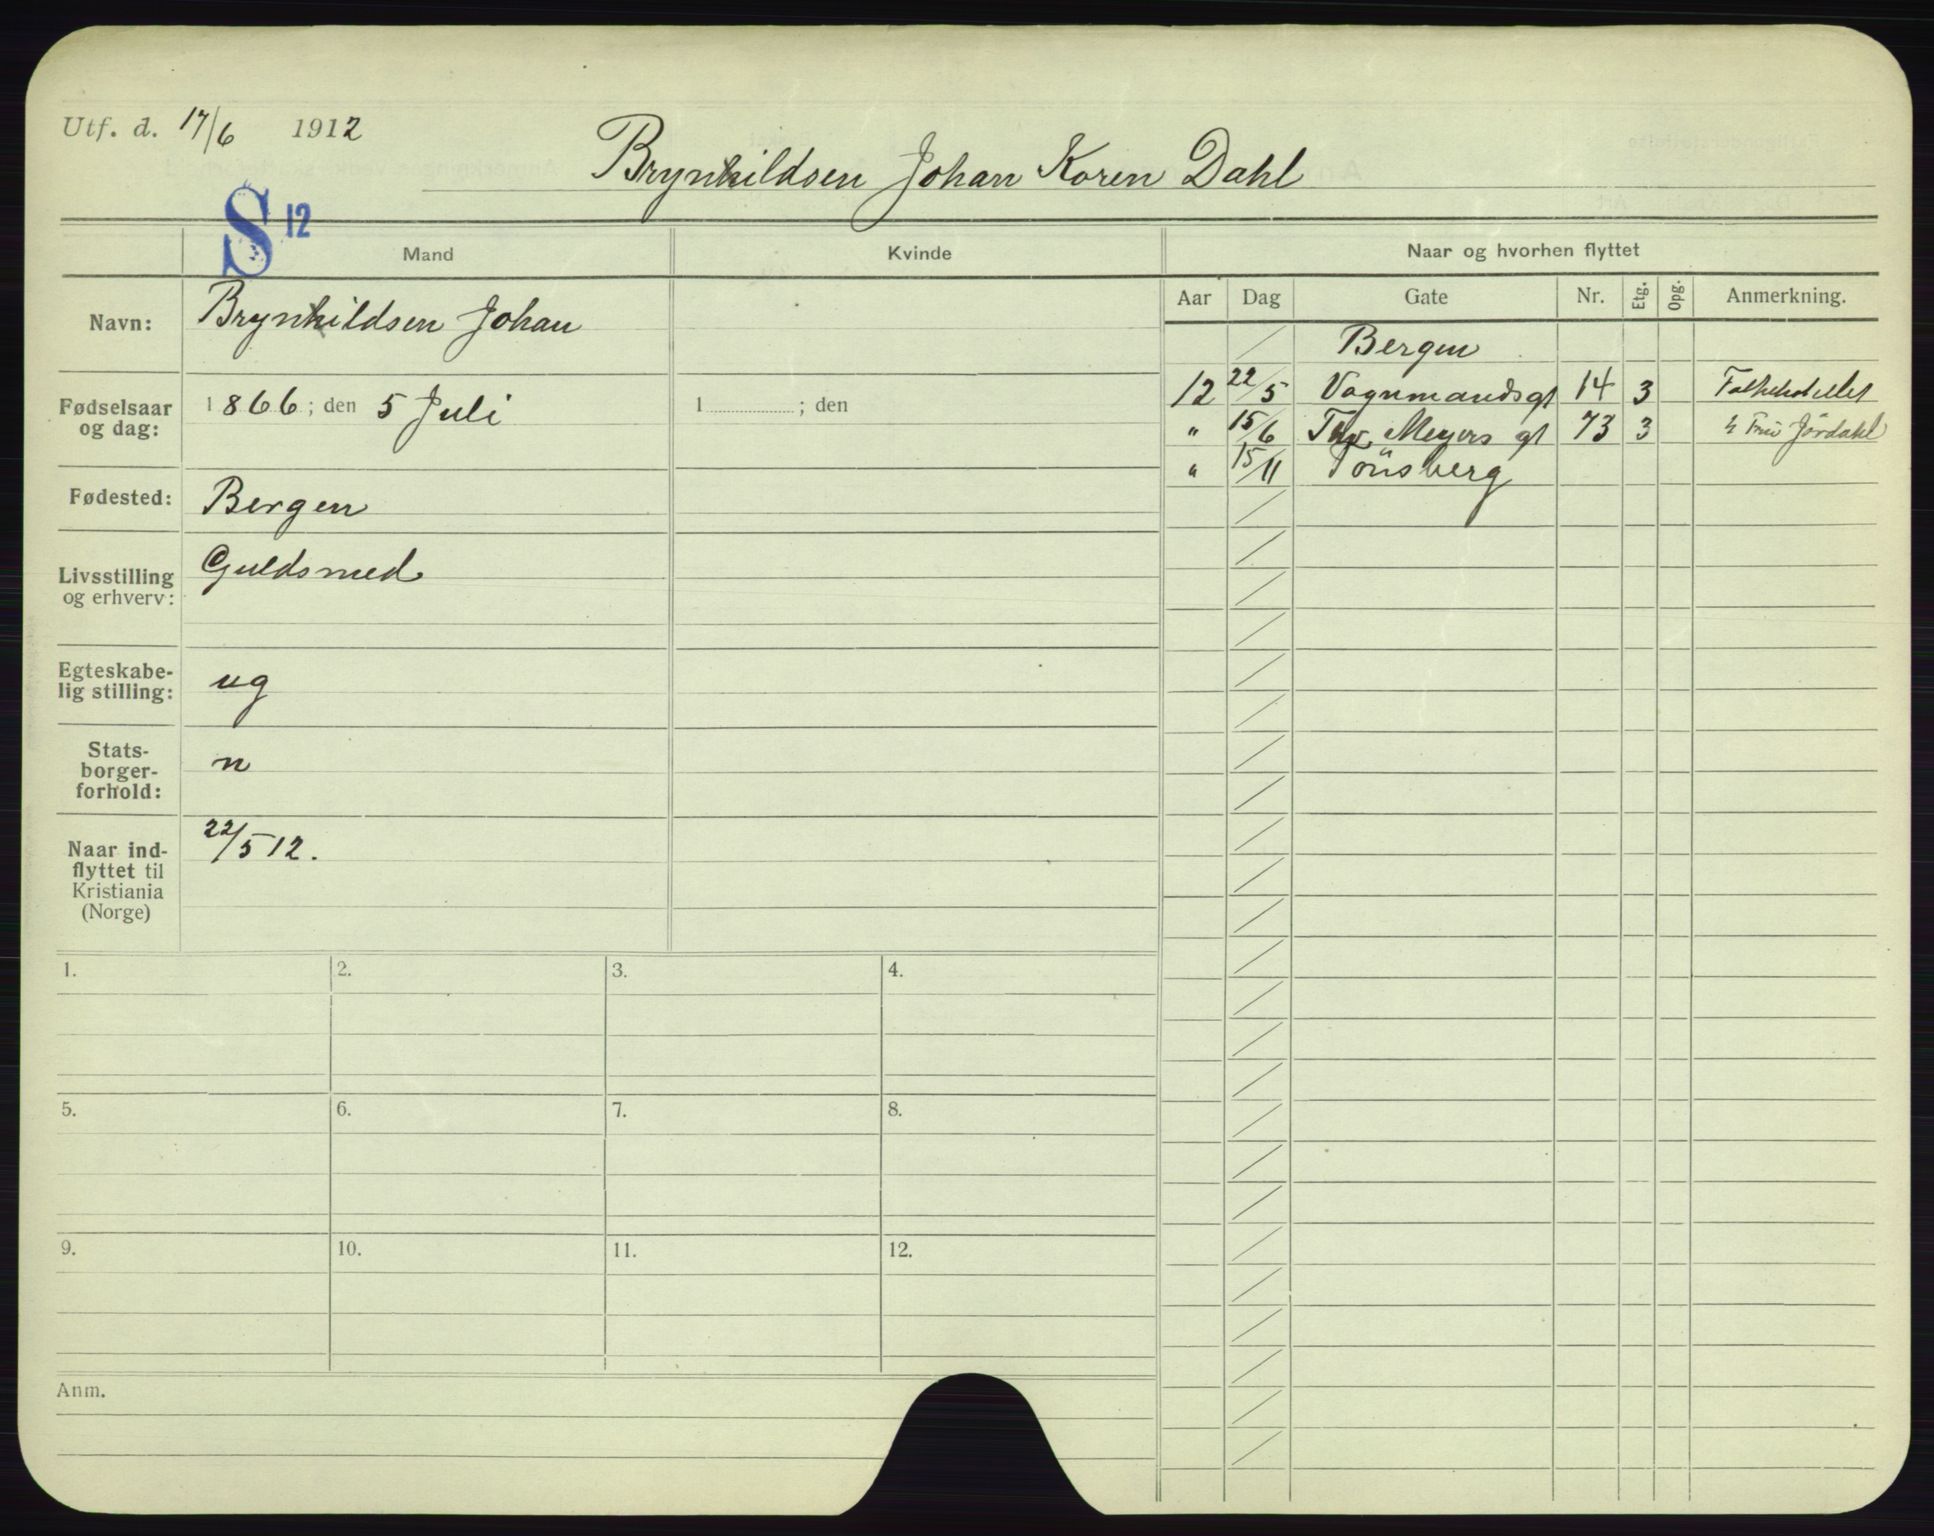 Utf. d. 17/6 1912
Brynhildsen Johan Koren Dahl
S 12
Mand
Kvinde
Naar og hvorhen flyttet
Navn:
Brynhildsen Johan
Fødselsaar og dag:
1866; den 5 Juli
1 ; den
Fødested:
Bergen
Livsstilling og erhverv:
Guldsmed
Egteskabe-
lig stilling:
ug
Stats-
borger-
forhold:
n
Naar ind-
flyttet til
Kristiania
(Norge)
22/5 12.
Aar Dag Gate Nr. Etg. Opg. Anmerkning.
/ Bergen
12 22/5 Vognmandsgt 14 3 Folkehotellet
" 15/6 Thv. Meyers gt 73 3 Fru Jördahl
" 15/11 Tönsberg
1. 2. 3. 4.
5. 6. 7. 8.
9. 10. 11. 12.
Anm.